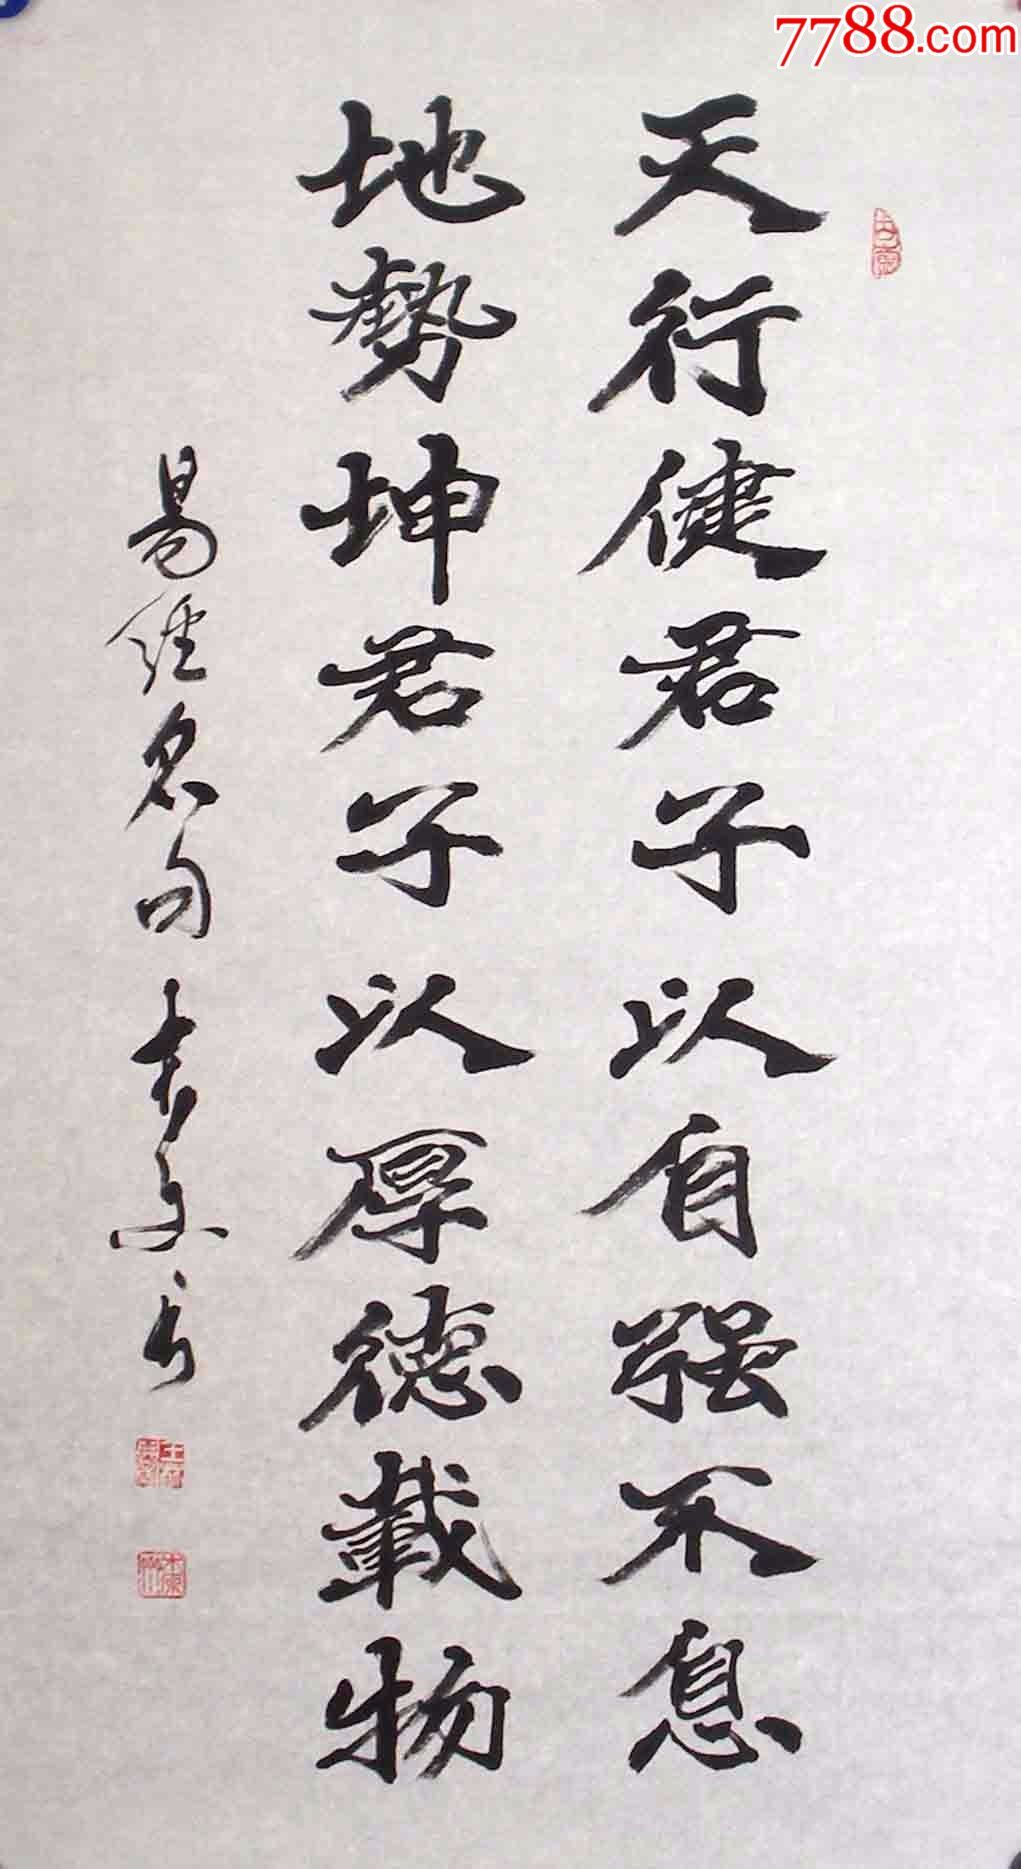 7788.com
天行健君子以自强不息
地勢坤君子以厚德載物
易经名句